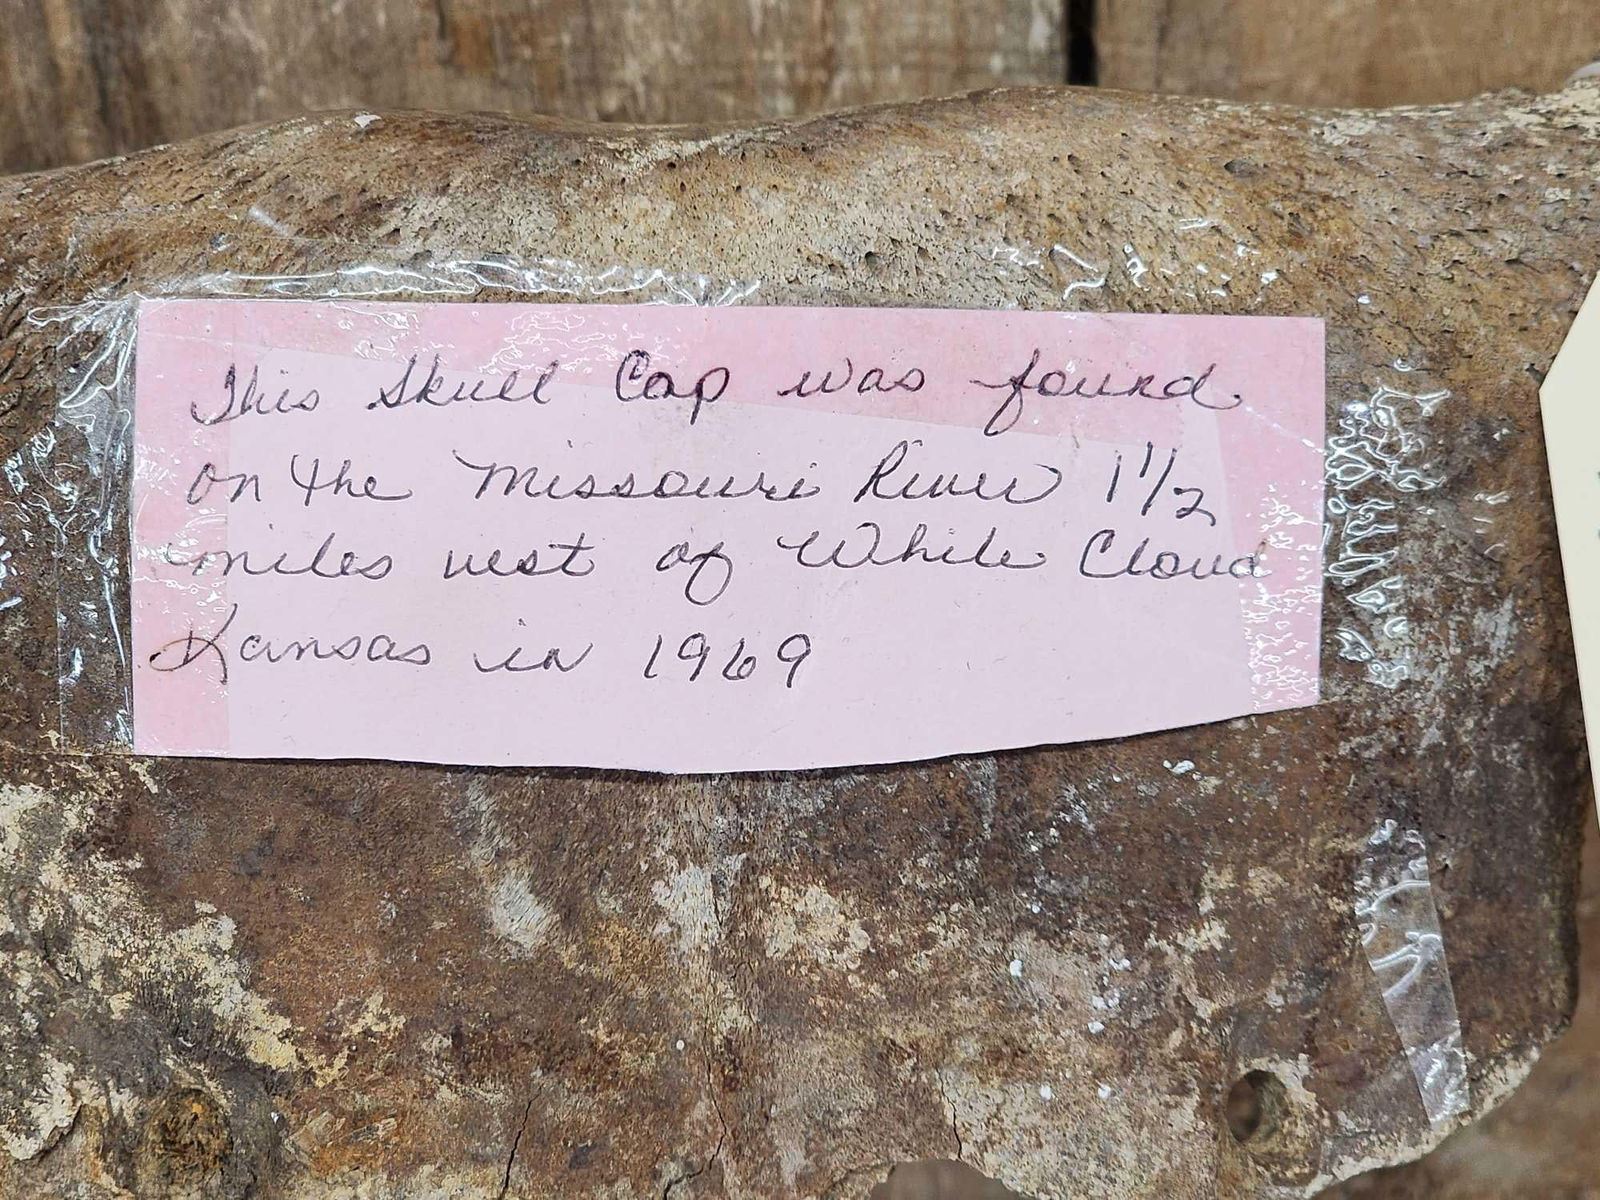 This Skull Cap was found
on the Missouri River 1 1/2
miles west of White Cloud
Kansas in 1969